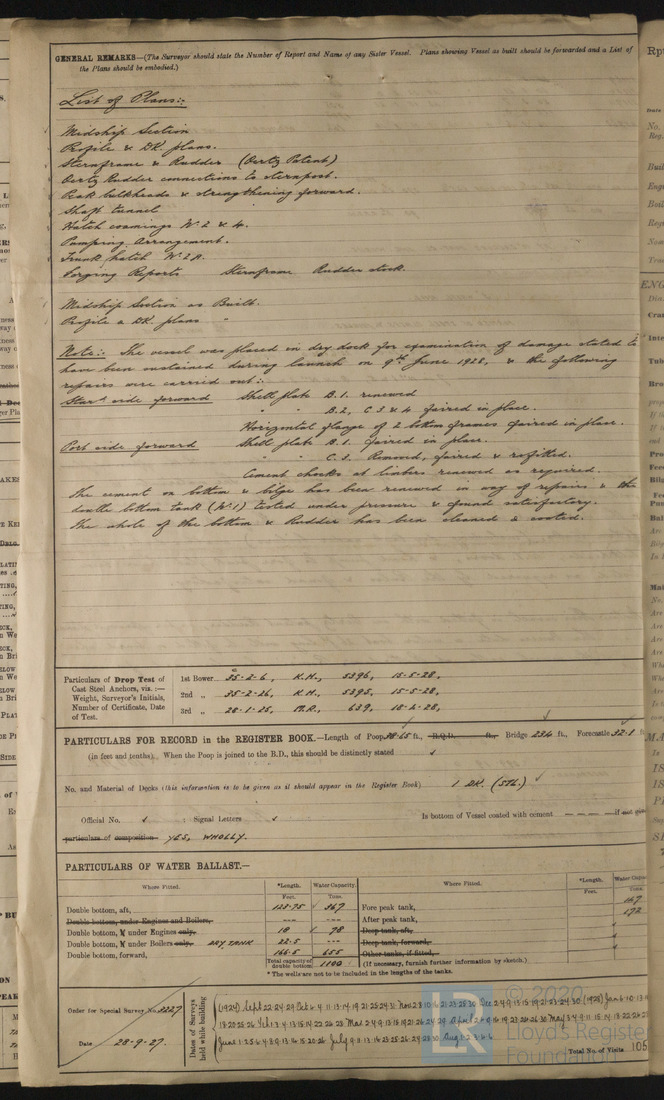 GENERAL REMARKS—(The Surveyor should state the Number of Report and Name of any Sister Vessel. Plans showing Vessel as built should be forwarded and a List of
the Plans should be embodied.)
List of Plans:-
Midship Section
Profile & DK. plans.
Sternframe & Rudder (Oertz Patent)
Oertz Rudder connections to sternpost.
Peak bulkheads & strengthening forward.
Shaft tunnel
Hatch coamings No. 2 & 4.
Pumping Arrangement.
Trunk hatch No. 2A.
Forging Reports Sternframe Rudder stock.
Midship Section as Built.
Profile & DK. plans "
Note:- The vessel was placed in dry dock for examination of damage stated to
have been sustained during launch on 9th June 1928, & the following
repairs were carried out:-
Starb side forward Shell plate B.1. renewed
" " B.2, C.3 & 4 faired in place.
Horizontal flange of 2 bottom frames faired in place.
Port side forward Shell plate B.1. faired in place.
" " C.3. Removed, faired & refitted.
Cement chocks at limbers renewed as required.
The cement on bottom & bilge has been renewed in way of repairs & the
double bottom tank (No. 1) tested under pressure & found satisfactory.
The whole of the bottom & Rudder has been cleaned & coated.
Particulars of Drop Test of
Cast Steel Anchors, viz. :—
Weight, Surveyor's Initials,
Number of Certificate, Date
of Test.
1st Bower 35-2-6, K.H., 5396, 15-5-28,
2nd „ 35-2-26, K.H., 5395, 15-5-28,
3rd „ 28-1-25, 639, 18-4-28,
PARTICULARS FOR RECORD in the REGISTER BOOK.—Length of Poop 38.65 ft., R.Q.D. ft., Bridge 234 ft., Forecastle 32.1 ft
(in feet and tenths). When the Poop is joined to the B.D., this should be distinctly stated
No. and Material of Decks (this information is to be given as it should appear in the Register Book) 1 DK. (STL.)
Official No. Signal Letters Is bottom of Vessel coated with cement if not give
particulars of composition YES, WHOLLY.
PARTICULARS OF WATER BALLAST.—
Where Fitted. *Length. Water Capacity. Where Fitted. *Length. Water Capac
Feet. Tons. Feet. Tons.
Double bottom, aft, 123.75 367 Fore peak tank, 167
Double bottom, under Engines and Boilers, --- --- After peak tank, 172
Double bottom, under Engines only, 18 78 Deep tank, aft,
Double bottom, under Boilers only, DRY TANK 22.5 --- Deep tank, forward,
Double bottom, forward, 166.5 655 Other tanks, if fitted,
Total capacity of double bottom 1100 (If necessary, furnish further information by sketch.)
* The wells are not to be included in the lengths of the tanks.
Order for Special Survey No. 3227
Date 28-9-27.
Dates of Surveys held while building
© 2020
Lloyd's Register
Foundation
LR
Total No. of Visits 105